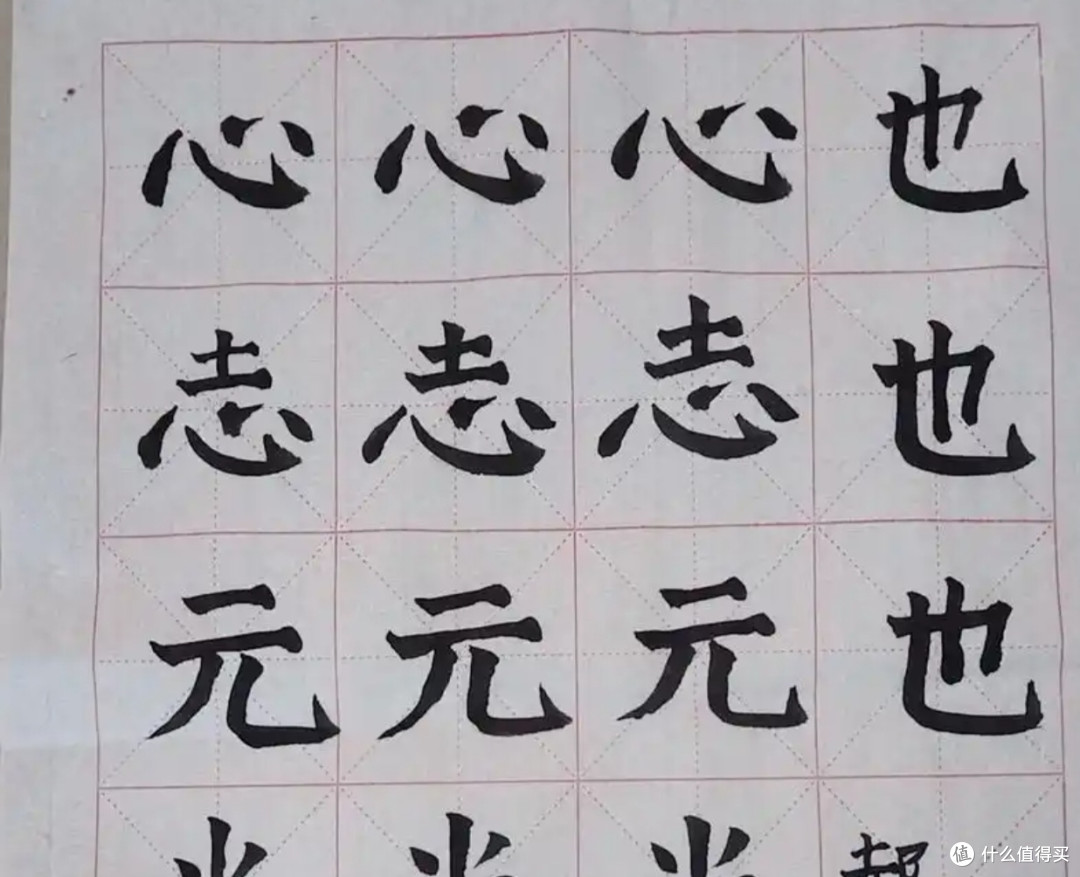 心心心也
志志志也
元元元也
什么值得买